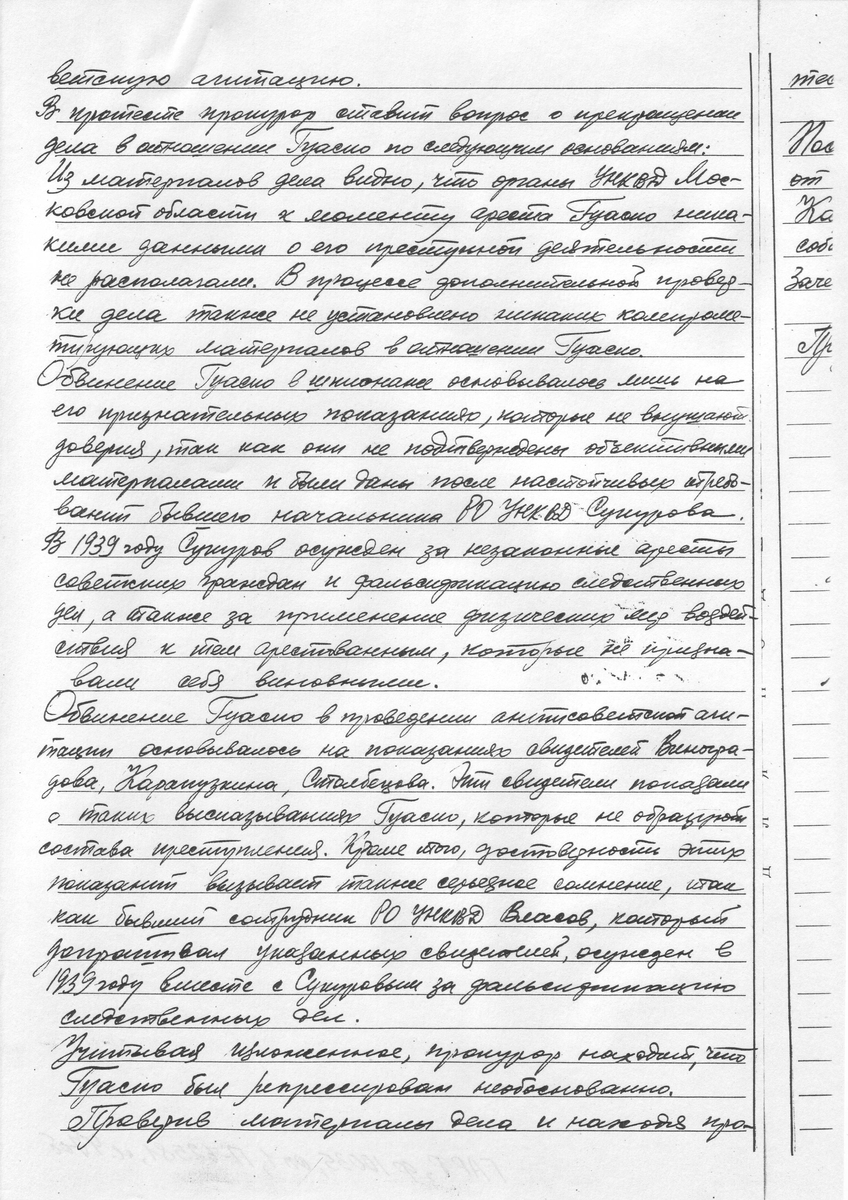 ветскую агитацию.
В протесте прокурор ставит вопрос о прекращении
дела в отношении Гуаско по следующим основаниям:
Из материалов дела видно, что органы УНКВД Мос-
ковской области к моменту ареста Гуаско ника-
кими данными о его преступной деятельности
не располагали. В процессе дополнительной провер-
ки дела также не установлено никаких компроме-
тирующих материалов в отношении Гуаско.
Обвинение Гуаско в шпионаже основывалось лишь на
его признательных показаниях, которые не внушают
доверия, так как они не подтверждены объективными
материалами и были даны после настойчивых требо-
ваний бывшего начальника РО УНКВД Сукурова.
В 1939 году Сукуров осужден за незаконные аресты
советских граждан и фальсификацию следственных
дел, а также за применение физических мер воздей-
ствия к тем арестованным, которые не призна-
вали себя виновными.
Обвинение Гуаско в проведении антисоветской аги-
тации основывалось на показаниях свидетелей Виногра-
дова, Карапузкина, Столбецова. Эти свидетели показали
о таких высказываниях Гуаско, которые не образуют
состава преступления. Кроме того, достоверность этих
показаний вызывает также серьезное сомнение, так
как бывший сотрудник РО УНКВД Власов, который
допрашивал указанных свидетелей, осужден в
1939 году вместе с Сукуровым за фальсификацию
следственных дел.
Учитывая изложенное, прокурор находит, что
Гуаско был репрессирован необоснованно.
Проверив материалы дела и находя про-
тес
Пос
от
Ка
соб
Заче
Пр